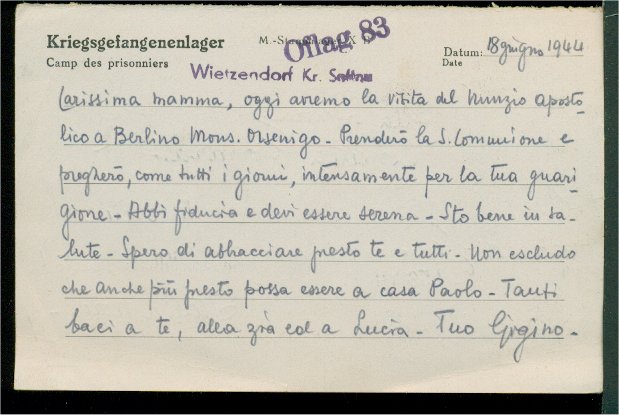 Kriegsgefangenenlager
Camp des prisonniers
M.-Stammlager X
Oflag 83
Wietzendorf Kr. Soltau
Datum: 18 giugno 1944
Date
Carissima mamma, oggi avremo la visita del Nunzio aposto
lico a Berlino Mons. Orsenigo - Prenderò la S. Comunione e
pregherò, come tutti i giorni, intensamente per la tua guari-
gione - Abbi fiducia e devi essere serena - Sto bene in sa-
lute - Spero di abbracciare presto te e tutti - Non escludo
che anche più presto possa essere a casa Paolo - Tanti
baci a te, alla zia ed a Lucia - Tuo Gigino -